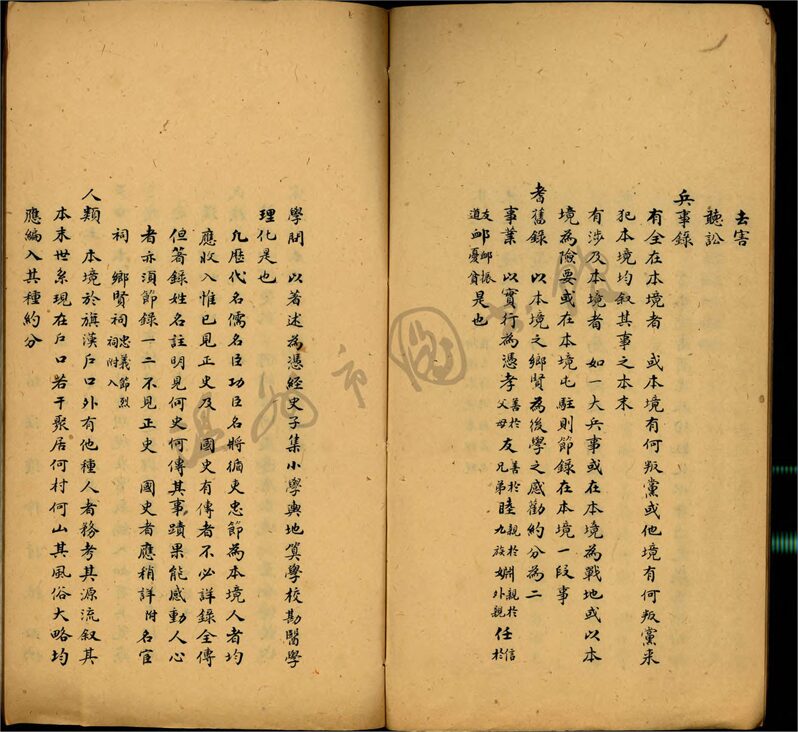 去害
聽訟
兵事錄
有全在本境者 或本境有何叛黨或他境有何叛黨來
犯本境均叙其事之本末
有涉及本境者 如一大兵事或在本境為戰地或以本
境為險要或在本境屯駐則節錄在本境一段事
耆舊錄 以本境之鄉賢為後學之感勸約分為二
事業 以實行為憑孝善於父母友善於兄弟睦親於九族婣親於外親任信於
友道䘏䘏振憂貧是也
學問 以著述為憑經史子集小學輿地筭學校勘醫學
理化是也
凢歷代名儒名臣功臣名將循吏忠節為本境人者均
應收入惟已見正史及 國史有傳者不必詳錄全傳
但著錄姓名註明見何史何傳其事蹟果能感動人心
者亦須節錄一二不見正史 國史者應稍詳附名宦
祠 鄉賢祠忠義節烈祠附入
人類 本境於旗漢戶口外有他種人者務考其源流叙其
本末世系現在戶口若干聚居何村何山其風俗大略均
應編入其種約分
市圖